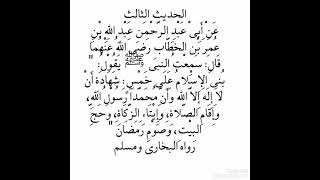 الحديث الثالث
عَنْ أَبِي عَبْدِ الرَّحْمَنِ عَبْدِ اللَّهِ بْنِ
عُمَرَ بْنِ الْخَطَّابِ رَضِيَ اللَّهُ عَنْهُمَا
قَالَ: سَمِعْتُ النَّبِيَّ ﷺ يَقُولُ: "
بُنِيَ الْإِسْلَامُ عَلَى خَمْسٍ: شَهَادَةِ أَنْ
لَا إِلَهَ إِلَّا اللَّهُ وَأَنَّ مُحَمَّدًا رَسُولُ اللَّهِ،
وَإِقَامِ الصَّلَاةِ، وَإِيتَاءِ الزَّكَاةِ، وَحَجِّ
الْبَيْتِ، وَصَوْمِ رَمَضَانَ "
رواه البخارى ومسلم